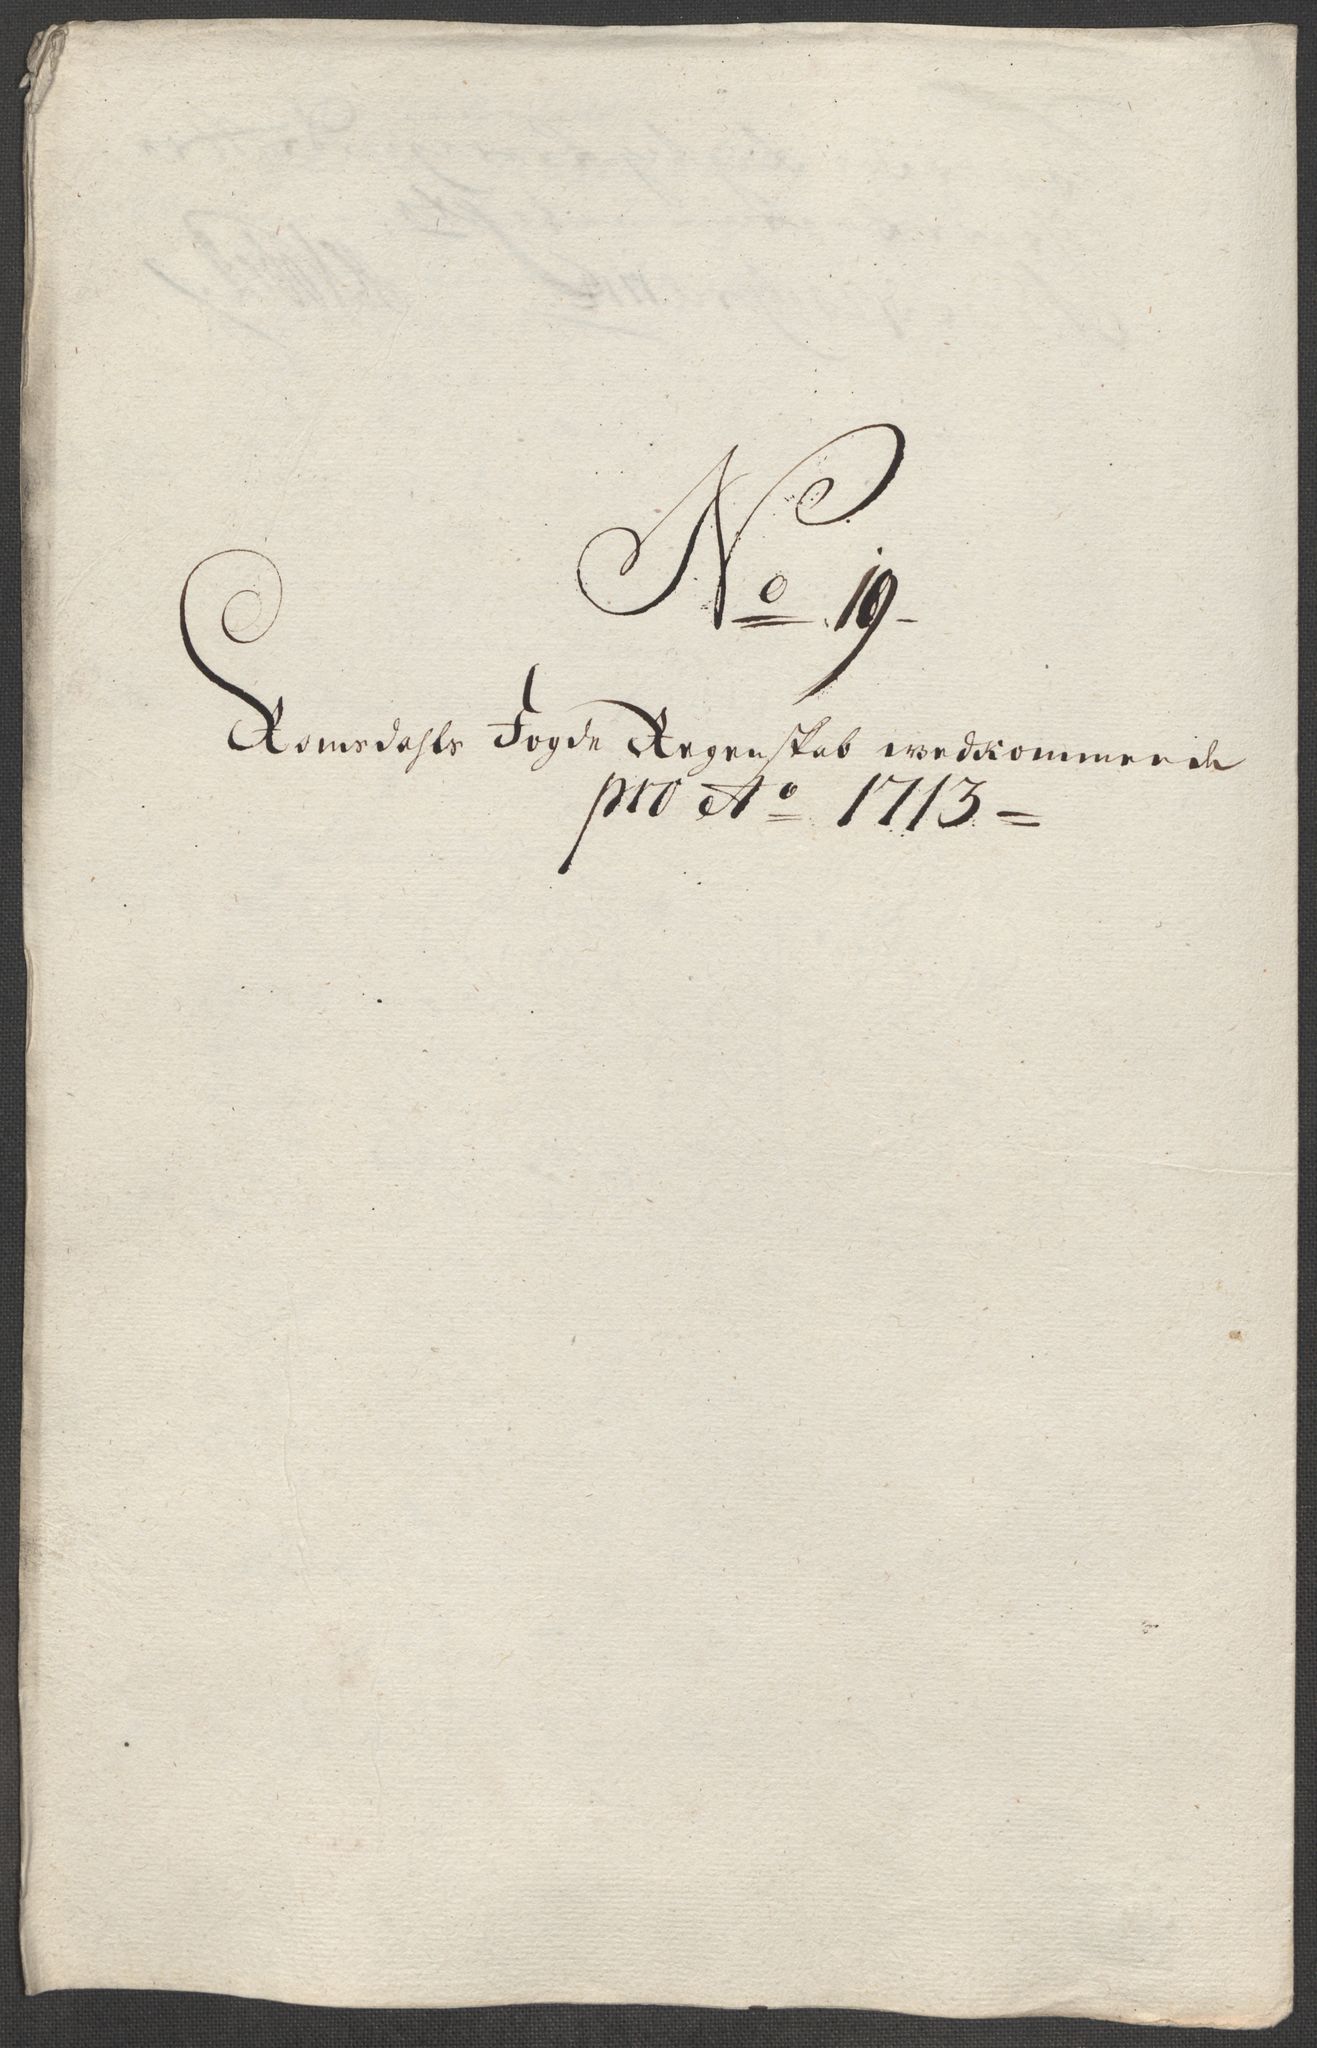 No 19
Romsdahls Fogde Regenskab wedkommende
pro Ao 1713